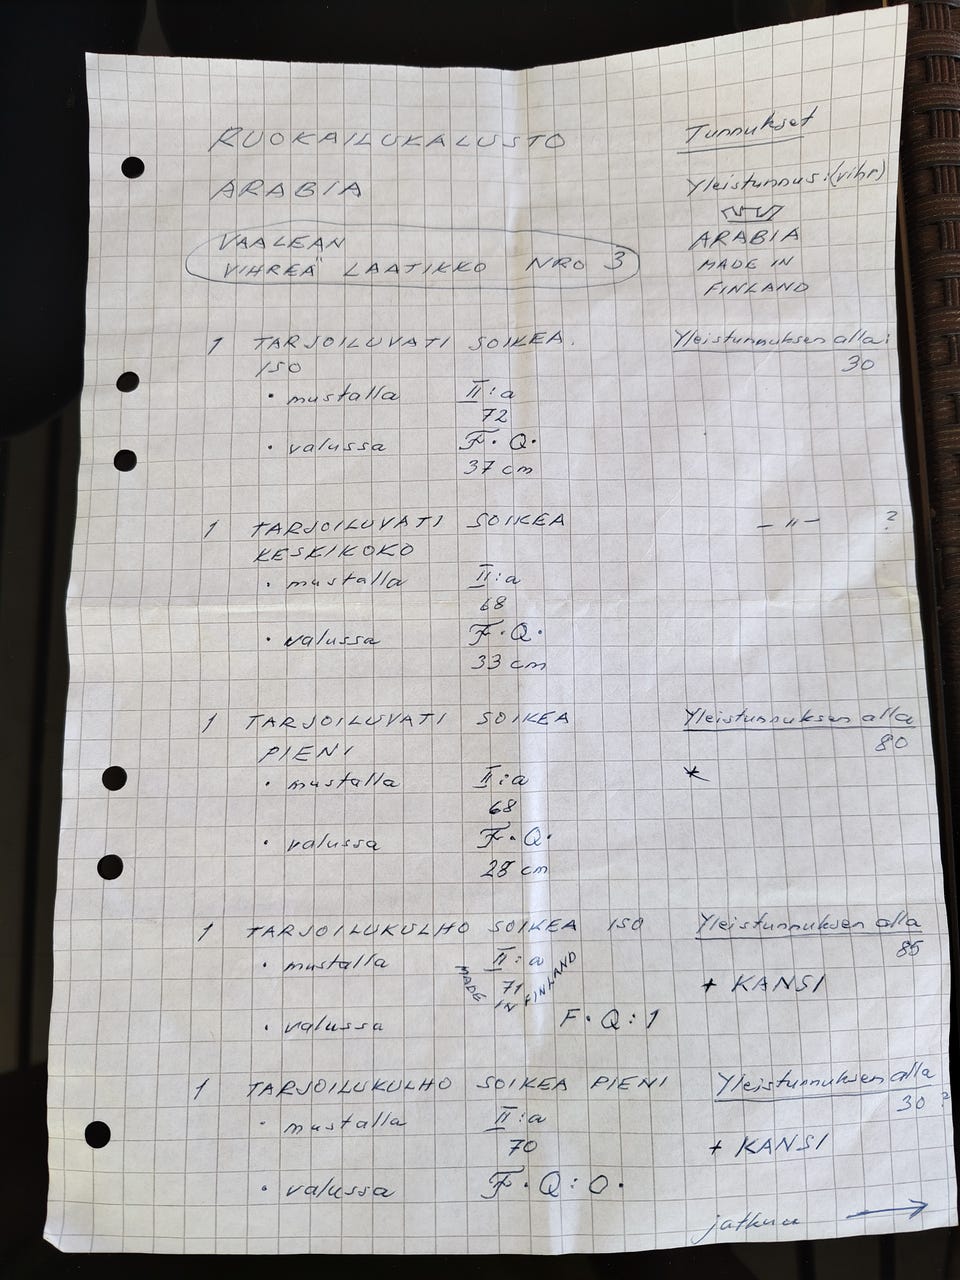 RUOKAILUKALUSTO
ARABIA
VAALEAN
VIHREÄ LAATIKKO NRO 3
Tunnukset
Yleistunnus: (vihr)
ARABIA
MADE IN
FINLAND
1 TARJOILUVATI SOIKEA.
ISO
Yleistunnuksen alla:
30
• mustalla II:a
72
• valussa F•Q•
37 cm
1 TARJOILUVATI SOIKEA
KESKIKOKO
– " – ?
• mustalla II:a
68
• valussa F•Q•
33 cm
1 TARJOILUVATI SOIKEA
PIENI
Yleistunnuksen alla
80
*
• mustalla II:a
68
• valussa F•Q•
28 cm
1 TARJOILUKULHO SOIKEA ISO
Yleistunnuksen alla
85
+ KANSI
• mustalla II:a
71
MADE IN FINLAND
• valussa F•Q:1
1 TARJOILUKULHO SOIKEA PIENI
Yleistunnuksen alla
30 ?
+ KANSI
• mustalla II:a
70
• valussa F•Q:0•
jatkuu →